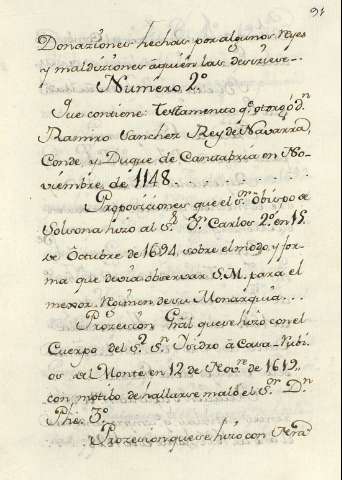 91
Donaziones hechas por algunos Reyes
y maldiziones aquien las deszieze-
Numero 2º
Que contiene: Testamento qe. otorgó dn
Ramiro Sanchez Rey de Navarra,
Conde, y Duque de Cantabria en No-
viembre de 1148.
Proposiciones que el Sr. Obispo de
Solsona hizo al Sr. Dn. Carlos 2º en 15
de Octubre de 1694, sobre el modo y for-
ma que devia observar S.M. para el
mexor Regimen de su Monarquia...
Prozesion Gral que se hizo con el
Cuerpo del Sr. Sn. Ysidro â Casa-Rubi-
os del Monte, en 12 de Novre de 1619,
con motibo de hallarse malo el Sr. Dn
Phe. 3º
Prozesion que se hizo con Nra